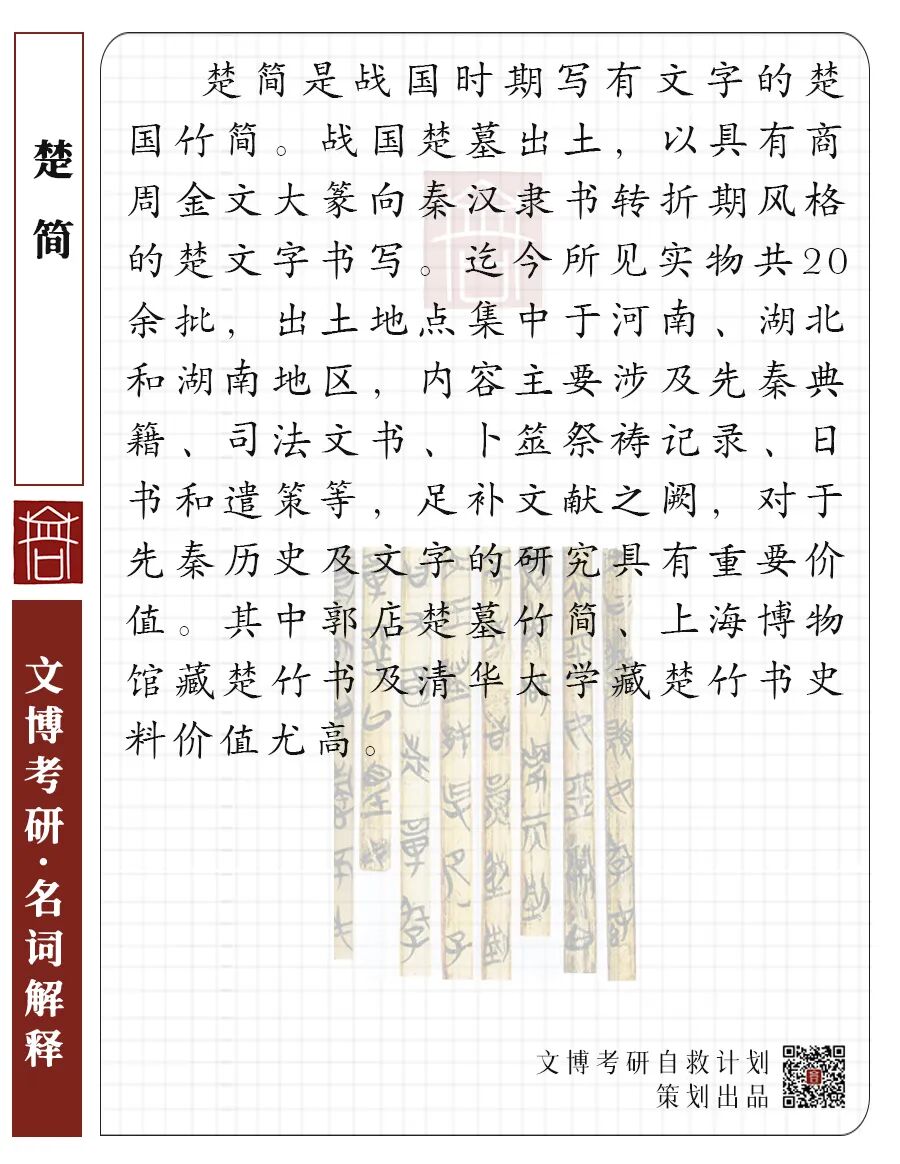 楚简
文博考研·名词解释
楚简是战国时期写有文字的楚
国竹简。战国楚墓出土，以具有商
周金文大篆向秦汉隶书转折期风格
的楚文字书写。迄今所见实物共20
余批，出土地点集中于河南、湖北
和湖南地区，内容主要涉及先秦典
籍、司法文书、卜筮祭祷记录、日
书和遣策等，足补文献之阙，对于
先秦历史及文字的研究具有重要价
值。其中郭店楚墓竹简、上海博物
馆藏楚竹书及清华大学藏楚竹书史
料价值尤高。
文博考研自救计划
策划出品